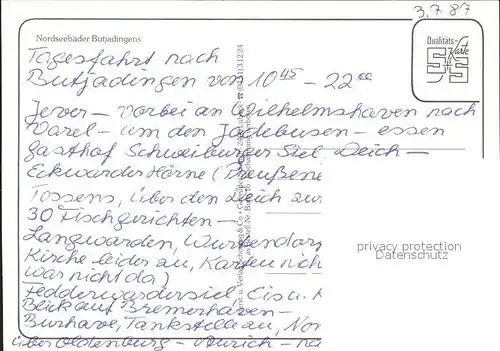 3.7.87
Nordseebäder Butjadingens
Qualitäts-
Karte
Tagesfahrt nach
Butjadingen von 10⁴⁵ – 22⁰⁰
Jever – vorbei an Wilhelmshaven nach
Varel – um den Jadebusen – essen
Gasthof Schweiburger Siel, Deich –
Eckwarder Hörne (Preußene
Tossens, über den Deich zur
30 Fischgerichten –
Langwarden, Wurtendorf
Kirche leider zu, Karten nich
war nicht da)
Fedderwardersiel, Eis u. K
Blick auf Bremerhaven –
Burhave, Tankstelle zu, Nor
über Oldenburg – Aurich – na
privacy protection
Datenschutz